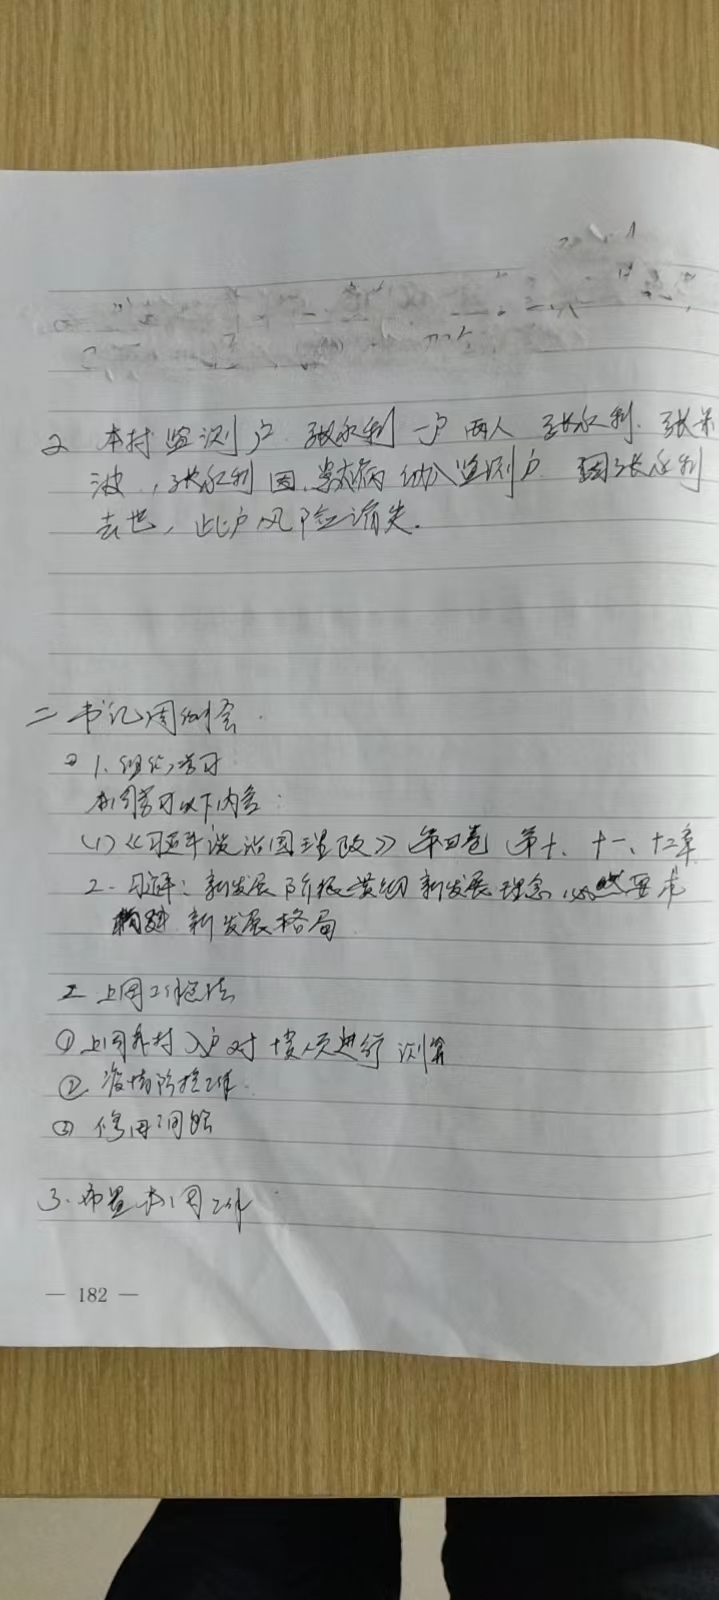 2 本村监测户 张永利一户两人 张永利、张
波，张永利因患大病纳入监测户 因张永利
去世，此户风险消失.
二 书记周例会.
1.组织学习
本周学习以下内容：
(1)《习近平谈治国理政》第四卷 第十、十一、十二章
2. 习近平：新发展阶段贯彻新发展理念必然要求
构建 新发展格局
2 上周工作总结
①上周 村入户对 人员进行测算
② 疫情防控工作.
③ 信用
3.布置本周工作
— 182 —